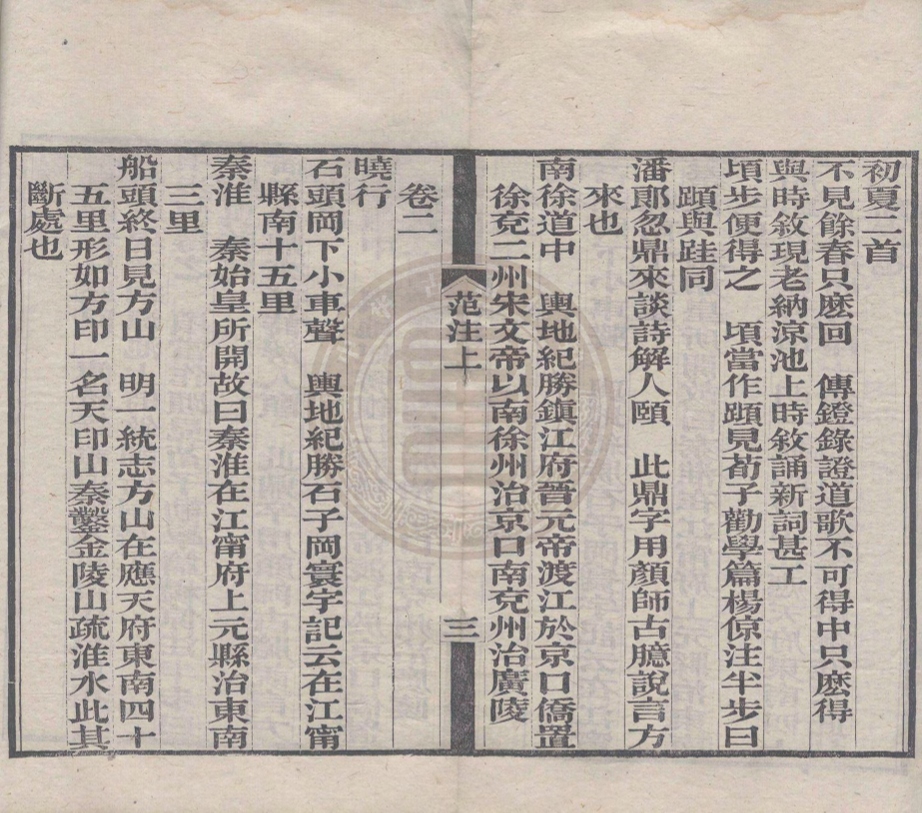 初夏二首
不見餘春只麽回　傳鐙錄證道歌不可得中只麽得
與時敘現老納涼池上時敘誦新詞甚工
頃步便得之　頃當作䠆見荀子勸學篇楊倞注半步曰
䠆與跬同
潘郞忽鼎來談詩解人頤　此鼎字用顏師古臆說言方
來也
南徐道中　輿地紀勝鎮江府晉元帝渡江於京口僑置
徐兗二州宋文帝以南徐州治京口南兗州治廣陵
范注上
三
卷二
曉行
石頭岡下小車聲　輿地紀勝石子岡寰宇記云在江甯
縣南十五里
秦淮　秦始皇所開故曰秦淮在江甯府上元縣治東南
三里
船頭終日見方山　明一統志方山在應天府東南四十
五里形如方印一名天印山秦鑿金陵山疏淮水此其
斷處也